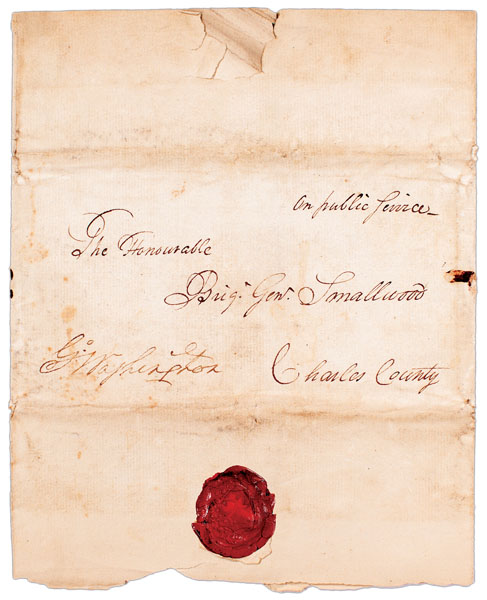 on public Service
The Honourable
Brigr. Genl. Smallwood
Go: Washington
Charles County